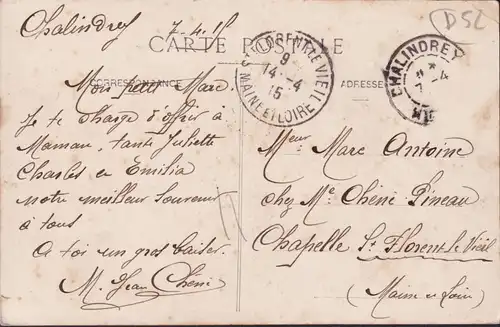 Chalindrey 7-4.15
D52
CARTE POSTALE
CORRESPONDANCE
ADRESSE
ST FLORENT LE VIEIL
9
14 -4
15
MAINE ET LOIRE
CHALINDREY
7 -4
Mon petit Marc.
Je te charge d'offrir à
Maman, tante Juliette
Charles et Emilia
notre meilleur souvenir
à tous
A toi un gros baiser.
M. Jean Chéné
Mr Marc Antoine
chez Me Chéné Pineau
Chapelle St Florent le Vieil
(Maine et Loire)